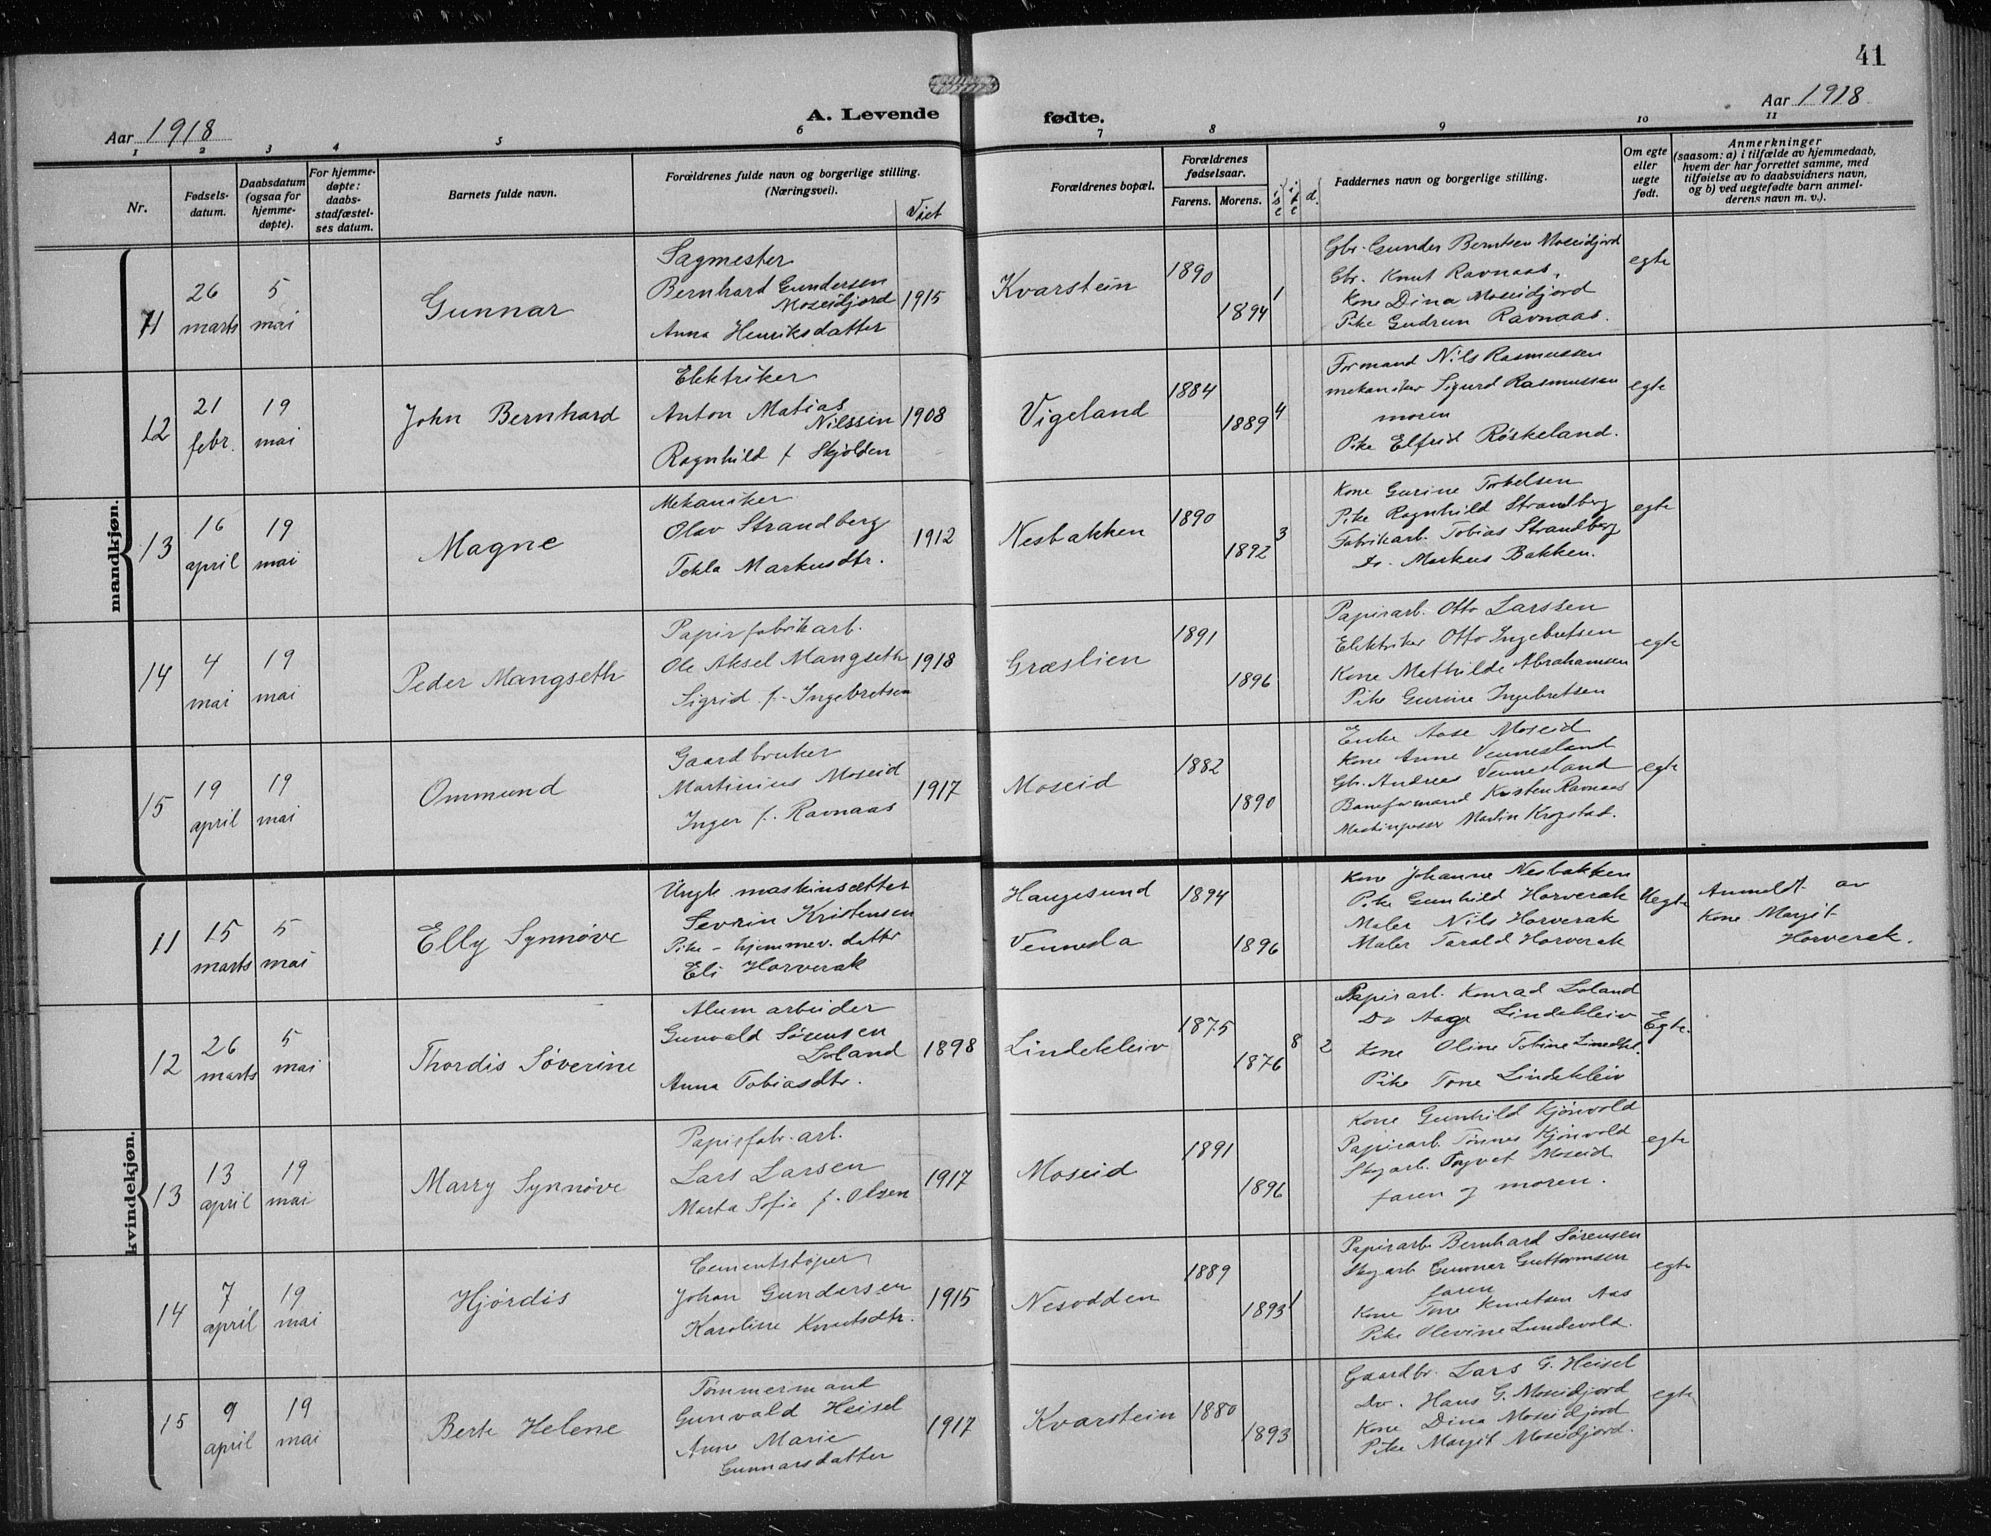 41
Aar 1918
A. Levende
fødte.
Aar 1918
1 2 3 4 5 6 7 8 9 10 11
Nr.
Fødsels-
datum.
Daabsdatum
(ogsaa for
hjemme-
døpte).
For hjemme-
døpte:
daabs-
stadfæstel-
ses datum.
Barnets fulde navn.
Forældrenes fulde navn og borgerlige stilling.
(Næringsvei).
Viet
Forældrenes bopæl.
Forældrenes
fødselsaar.
Farens. Morens.
d.
Faddernes navn og borgerlige stilling.
Om egte
eller
uegte
født.
Anmerkninger
(saasom: a) i tilfælde av hjemmedaab,
hvem der har forrettet samme, med
tilføielse av to daabsvidners navn,
og b) ved uegtefødte barn anmel-
derens navn m. v.).
mandkjøn.
11
26
marts
5
mai
Gunnar
Sagmester
Bernhard Gundersen
Moseidjord
Anna Henriksdatter
1915
Kvarstein
1890
1894
1
Gbr. Gunder Berntsen Moseidjord
Gbr. Knut Ravnaas.
Kone Dina Moseidjord
Pike Gudrun Ravnaas.
egte
12
21
febr.
19
mai
John Bernhard
Elektriker
Anton Matias
Nilssen
Ragnhild f. Skjolden
1908
Vigeland
1884
1889
4
Formand Nils Rasmussen
mekaniker Sigurd Rasmussen
moren
Pike Elfrid Røskeland.
egte
13
16
april
19
mai
Magne
Mekaniker
Olav Strandberg
Tekla Markusdtr.
1912
Nesbakken
1890
1892
3
Kone Gurine Torkelsen
Pike Ragnhild Strandberg
Fabrikarb. Tobias Strandberg
Do. Markus Bakken.
egte
14
4
mai
19
mai
Peder Mangseth
Papirfabrikarb.
Ole Aksel Mangseth
Sigrid f. Ingebretsen
1918
Græslien
1891
1896
Papirarb. Otto Larssen
Elektriker Otto Ingebretsen
Kone Mathilde Abrahamsen
Pike Gurine Ingebretsen
egte
15
19
april
19
mai
Ommund
Gaardbruker
Martinius Moseid
Inger f. Ravnaas
1917
Moseid
1882
1890
Enke Aase Moseid
Kone Anne Vennesland
Gbr. Andreas Vennesland
Baneformand Kristen Ravnaas
Maskinpasser Martin Krogstad.
egte
kvindekjøn.
11
15
marts
5
mai
Elly Synnøve
Ungk. maskinsætter
Sevrin Kristensen
Pike - hjemmev. datter
Eli Horverak
Haugesund
Vennesla
1894
1896
Kone Johanne Nesbakken
Pike Gunhild Horverak
Maler Nils Horverak
Maler Tarald Horverak
Uegte
Anmeldt av
Kone Margit
Horverak.
12
26
marts
5
mai
Thordis Søverine
Alumarbeider
Gunvald Sørensen
Loland
Anna Tobiasdtr.
1898
Lindekleiv
1875
1876
8 2
Papirarb. Konrad Loland
Do Aage Lindekleiv
Kone Oline Tobine Lindekl.
Pike Tone Lindekleiv
Egte.
13
13
april
19
mai
Marry Synnøve
Papirfabr. arb.
Lars Larsen
Marta Sofie f. Olsen
1917
Moseid
1891
1896
Kone Gunhild Kjønvold
Papirarb. Tønnes Kjønvold
Skogarb. Trygvet Moseid
faren og moren.
egte
14
7
april
19
mai
Hjørdis
Cementstøper
Johan Gundersen
Karoline Knutsdtr.
1915
Nesodden
1889
1893
1
Papirarb. Bernhard Sørensen
Skogarb. Gunnar Guttormsen
faren
Kone Tone Knutsen Aas
Pike Olevine Lundevold.
egte
15
9
april
19
mai
Berte Helene
Tømmermand
Gunvald Heisel
Anne Marie
Gunnarsdatter
1917
Kvarstein
1880
1893
Gaardbr. Lars G. Heisel
Do. Hans G. Moseidjord
Kone Dina Moseidjord
Pike Margit Moseidjord.
egte